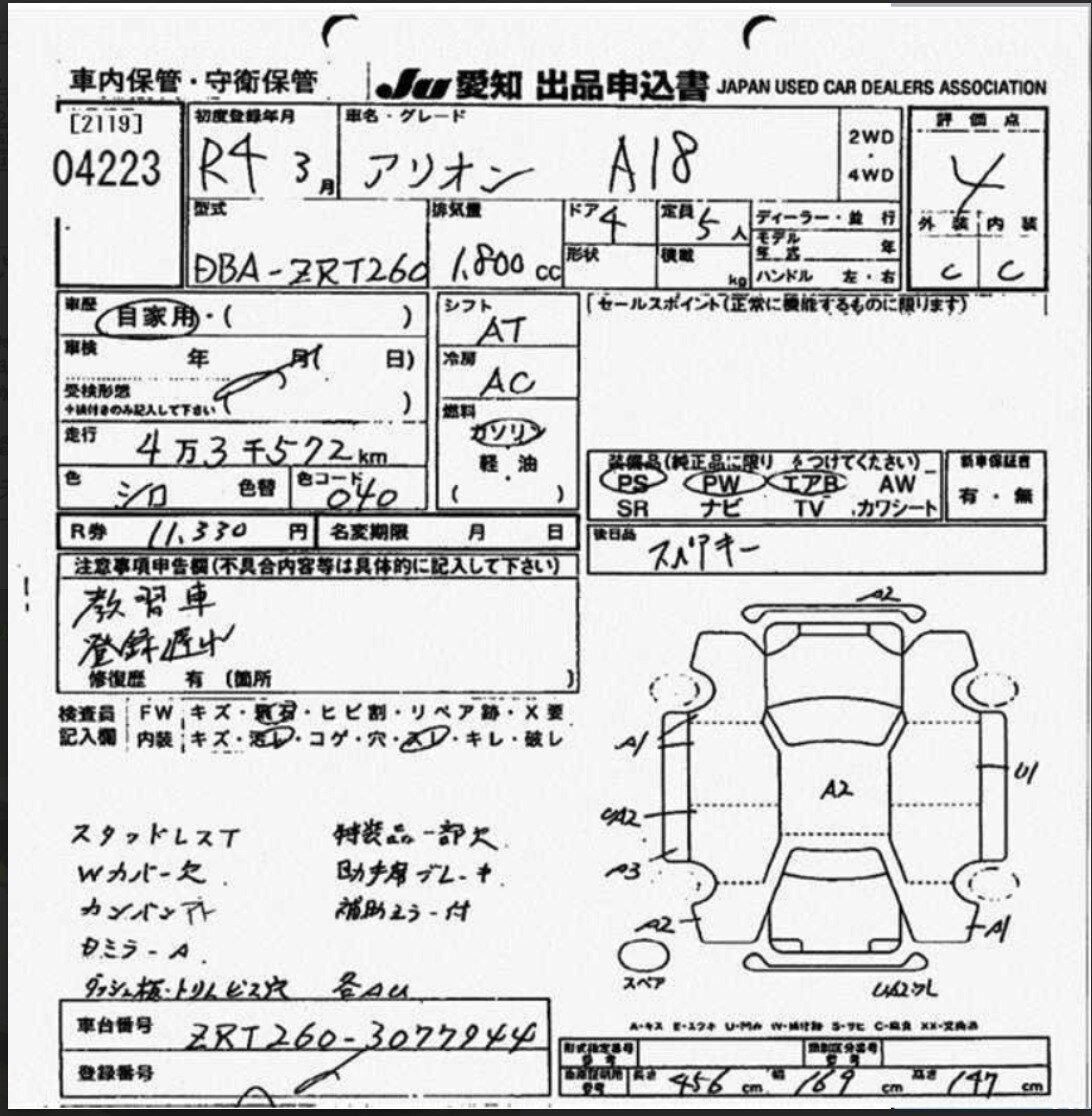 車内保管・守衛保管
JU 愛知 出品申込書 JAPAN USED CAR DEALERS ASSOCIATION
[2119]
04223
初度登録年月
R4 3月
車名・グレード
アリオン A18
2WD
・
4WD
評価点
4
外装 内装
C C
型式
DBA-ZRT260
排気量
1,800 cc
ドア 4
定員 5人
形状
積載 kg
ディーラー・並行
モデル年式 年
ハンドル 左・右
車歴 自家用・( )
車検 年 月( 日)
受検形態
*検付きのみ記入して下さい( )
走行 4万3千572km
色 シロ 色替
色コード 040
シフト
AT
冷房
AC
燃料
ガソリン
軽油
・
( )
[セールスポイント(正常に機能するものに限ります)
装備品(純正品に限り をつけてください)
PS PW エアB AW
SR ナビ TV カワシート
新車保証書
有・無
R券 11,330 円 名変期限 月 日
後日品 スペアキー
注意事項申告欄(不具合内容等は具体的に記入して下さい)
教習車
登録遅れ
修復歴 有 (箇所 )
検査員 FW キズ・飛石・ヒビ割・リペア跡・X要
記入欄 内装 キズ・汚レ・コゲ・穴・スレ・キレ・破レ
スタッドレスT 特装品一部欠
Wカバー欠 助手席ブレーキ
カンバンアト 補助ミラー付
ミラーA
ダッシュ板・トリムビス穴 各AU
A2
A1
U1
A2
UA2
A3
A2
A1
スペア
A-キズ E-エクボ U-凹み W-補修跡 S-サビ C-腐食 XX-交換済
車台番号 ZRT260-3077944
登録番号
形式指定番号
類別区分番号
長さ 456 cm 幅 169 cm 高さ 147 cm